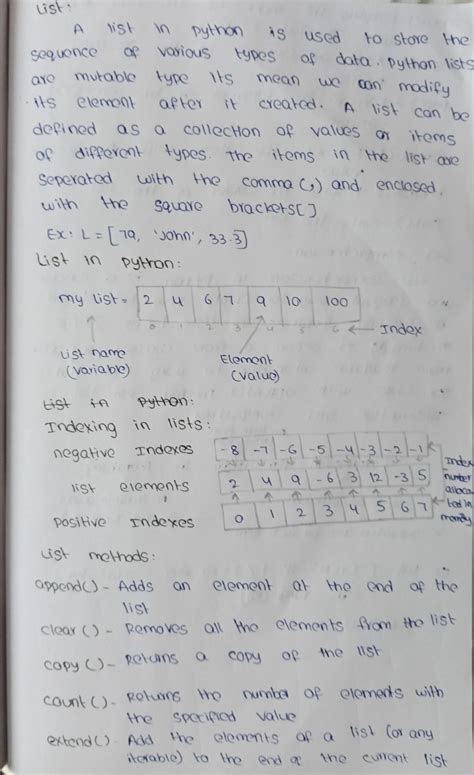 List:
A list in python is used to store the
sequence of various types of data. Python lists
are mutable type its mean we can modify
its element after it created. A list can be
defined as a collection of values or items
of different types. The items in the list are
seperated with the comma (,) and enclosed
with the square brackets[]
Ex: L = [79, 'John', 33.3]
List in python:
my list = 2 4 6 7 9 10 100
0 1 2 3 4 5 6 ← Index
List name
(variable)
Element
(value)
List in python:
Indexing in lists:
negative Indexes -8 -7 -6 -5 -4 -3 -2 -1
list elements 2 4 9 -6 3 12 -3 5
positive Indexes 0 1 2 3 4 5 6 7
Index
number
alloca
ted in
memory
List methods:
append() - Adds an element at the end of the
list
clear () - Removes all the elements from the list
copy () - Returns a copy of the list
count () - Returns the number of elements with
the specified value
extend() - Add the elements of a list (or any
iterable) to the end of the current list